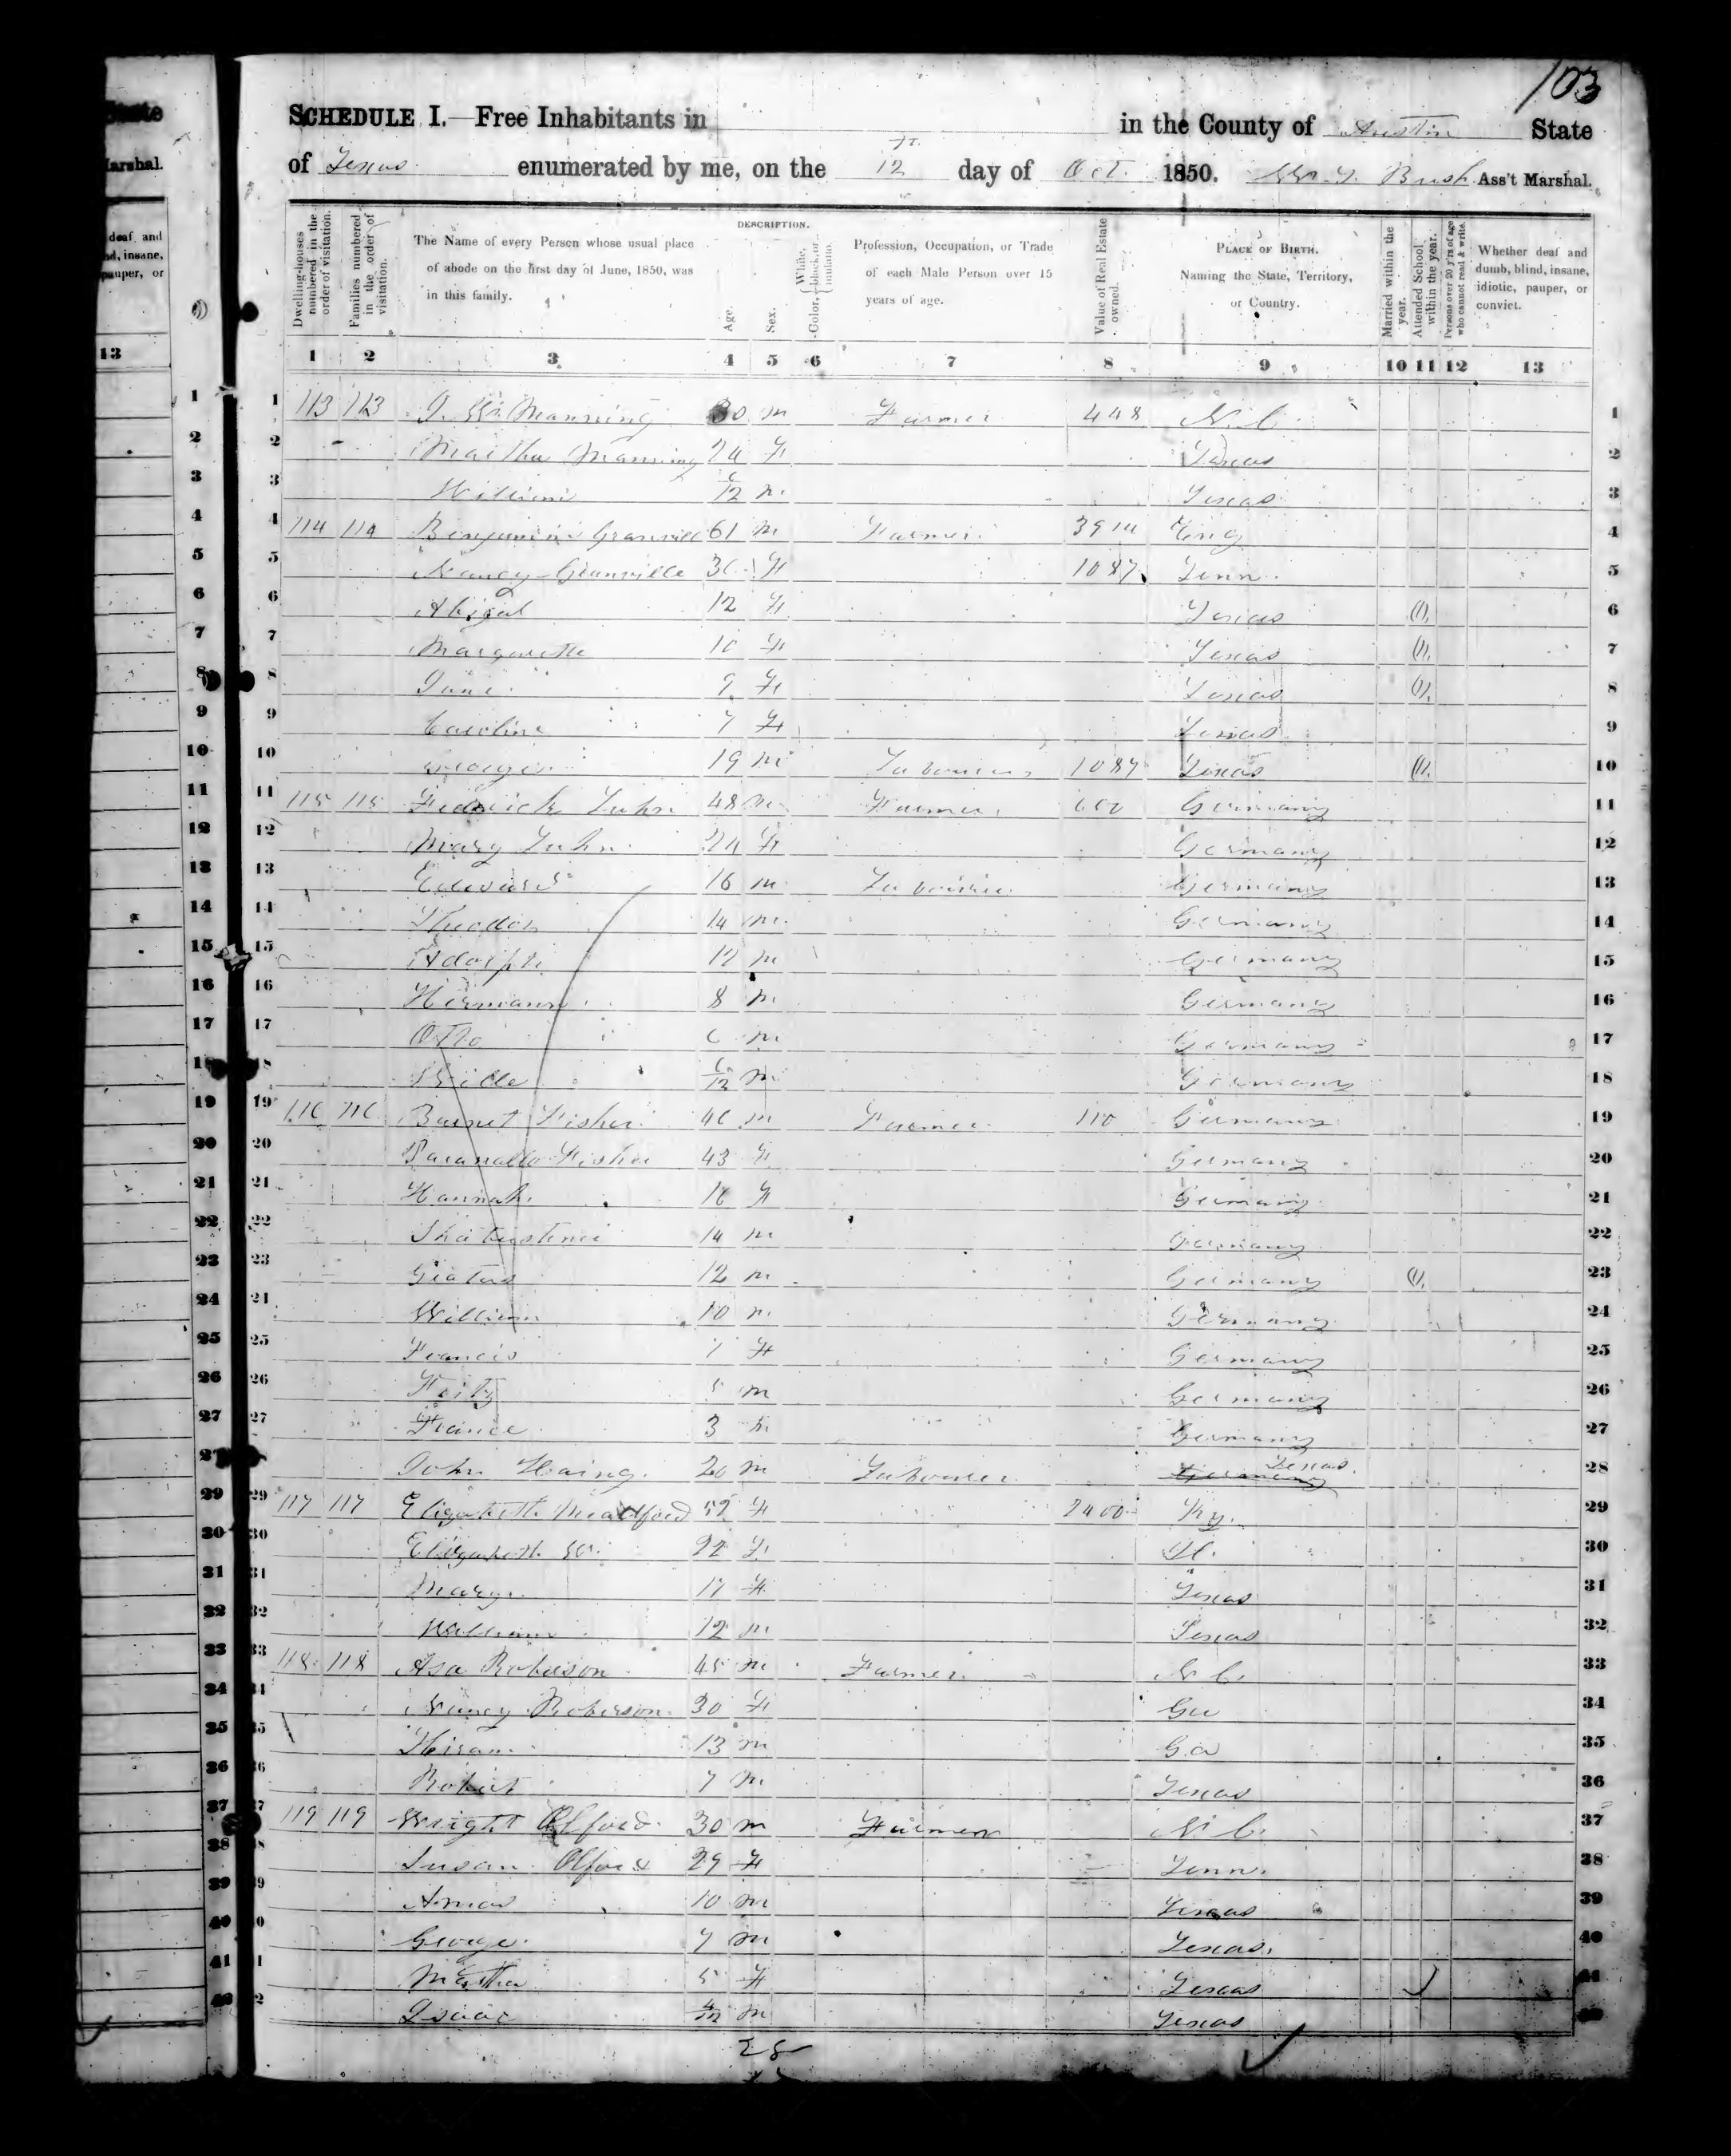 103
SCHEDULE I. Free Inhabitants in in the County of Austin State
of Texas enumerated by me, on the 12 day of Oct. 1850. Bush Ass't Marshal.
Dwelling-houses numbered in the order of visitation.
Families numbered in the order of visitation.
The Name of every Person whose usual place of abode on the first day of June, 1850, was in this family.
DESCRIPTION.
Age.
Sex.
Color, { White, black, or mulatto.
Profession, Occupation, or Trade of each Male Person over 15 years of age.
Value of Real Estate owned.
PLACE OF BIRTH. Naming the State, Territory, or Country.
Married within the year.
Attended School within the year.
Persons over 20 y'rs of age who cannot read & write.
Whether deaf and dumb, blind, insane, idiotic, pauper, or convict.
1 2 3 4 5 6 7 8 9 10 11 12 13
1 113 113 Manning 30 m Farmer 448 N. C. 1
2 Martha Manning 24 F Texas 2
3 William 6/12 m Texas 3
4 114 114 Benjamin Granville 61 m Farmer Eng 4
5 Nancy Granville F 1087 Tenn. 5
6 Abigal 12 F Texas 6
7 Margarette 10 F Texas 7
8 Jane 9 F Texas 8
9 Caroline 7 F Texas 9
10 George 19 m Labourer 1087 Texas 10
11 115 115 Fedrick Luhn 48 m Farmer 600 Germany 11
12 Mary Luhn 24 F Germany 12
13 Edward 16 m Labourer Germany 13
14 Theodor 14 m Germany 14
15 Adolph 12 m Germany 15
16 Hermann 8 m Germany 16
17 Otto 6 m Germany 17
18 6/12 m Germany 18
19 116 116 Barnet Fisher 46 m Farmer 110 Germany 19
20 Fisher 43 F Germany 20
21 Hannah 16 F Germany 21
22 14 m Germany 22
23 12 m Germany 23
24 William 10 m Germany 24
25 Francis 7 F Germany 25
26 5 m Germany 26
27 3 m Germany 27
28 John 20 m Labourer Germany Texas 28
29 117 117 Elizabeth 52 F 2400 Ky. 29
30 Elizabeth W. 22 F 30
31 Mary 17 F Texas 31
32 William 12 m Texas 32
33 118 118 Asa Roberson 45 m Farmer N C. 33
34 Nancy Roberson 30 F Ga 34
35 Hiram 13 m Ga 35
36 Robert 7 m Texas 36
37 119 119 Wright Alford 30 m Farmer N. C. 37
38 Susan Alford 29 F Tenn. 38
39 Amas 10 m Texas 39
40 George 7 m Texas. 40
41 Martha 5 F Texas 41
42 Isaac 4/12 m Texas 42